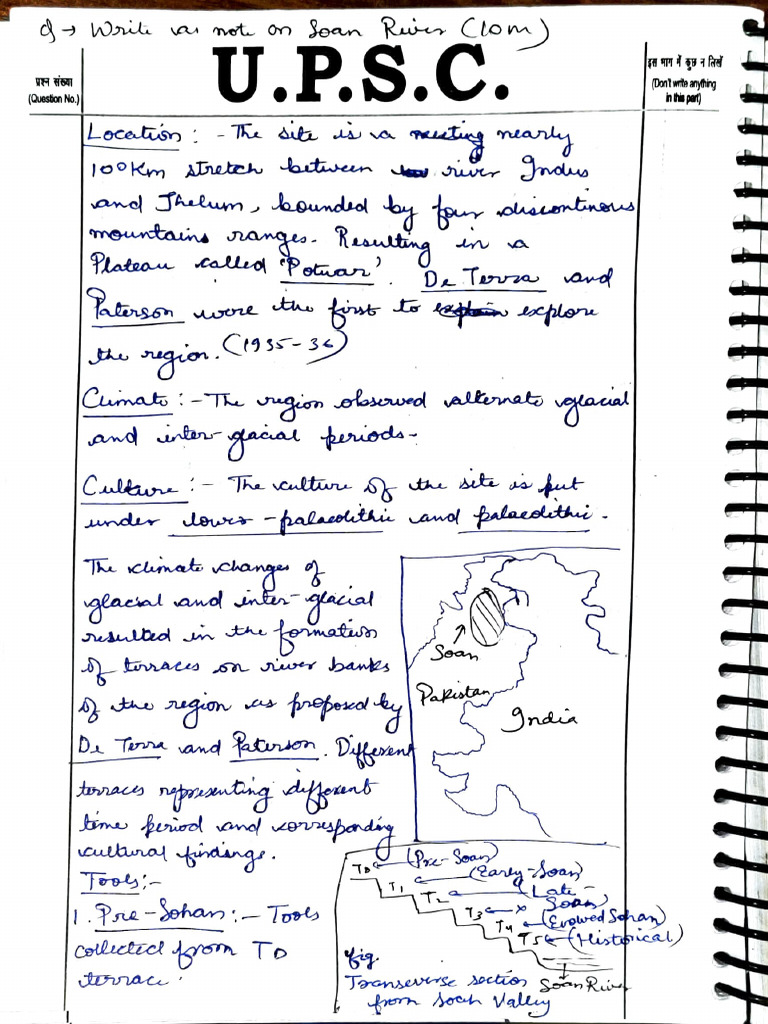 Q → Write a note on Soan River (10m)
U.P.S.C.
प्रश्न संख्या
(Question No.)
इस भाग में कुछ न लिखें
(Don't write anything
in this part)
Location : - The site is a nearly
100Km stretch between river Indus
and Jhelum, bounded by four discontinous
mountains ranges. Resulting in a
Plateau called 'Potwar'. De Terra and
Paterson were the first to explore
the region. (1935-36)
Climate : - The region observed alternate glacial
and inter-glacial periods-
Culture : - The culture of the site is put
under lower-palaeolithic and palaeolithic.
The climate changes of
glacial and inter-glacial
resulted in the formation
of terraces on river banks
of the region as proposed by
De Terra and Paterson. Different
terraces representing different
time period and corresponding
cultural findings.
Tools:-
1. Pre-Sohan : - Tools
collected from TD
terrace.
Soan
Pakistan
India
TD ← (Pre-Soan)
T1 ← (Early-Soan)
T2 ← (Late-
Soan)
T3 ← x
T4 ← (Evolved Sohan)
T5 ← (Historical)
Soan River
fig.
Transeverse section
from Soan Valley